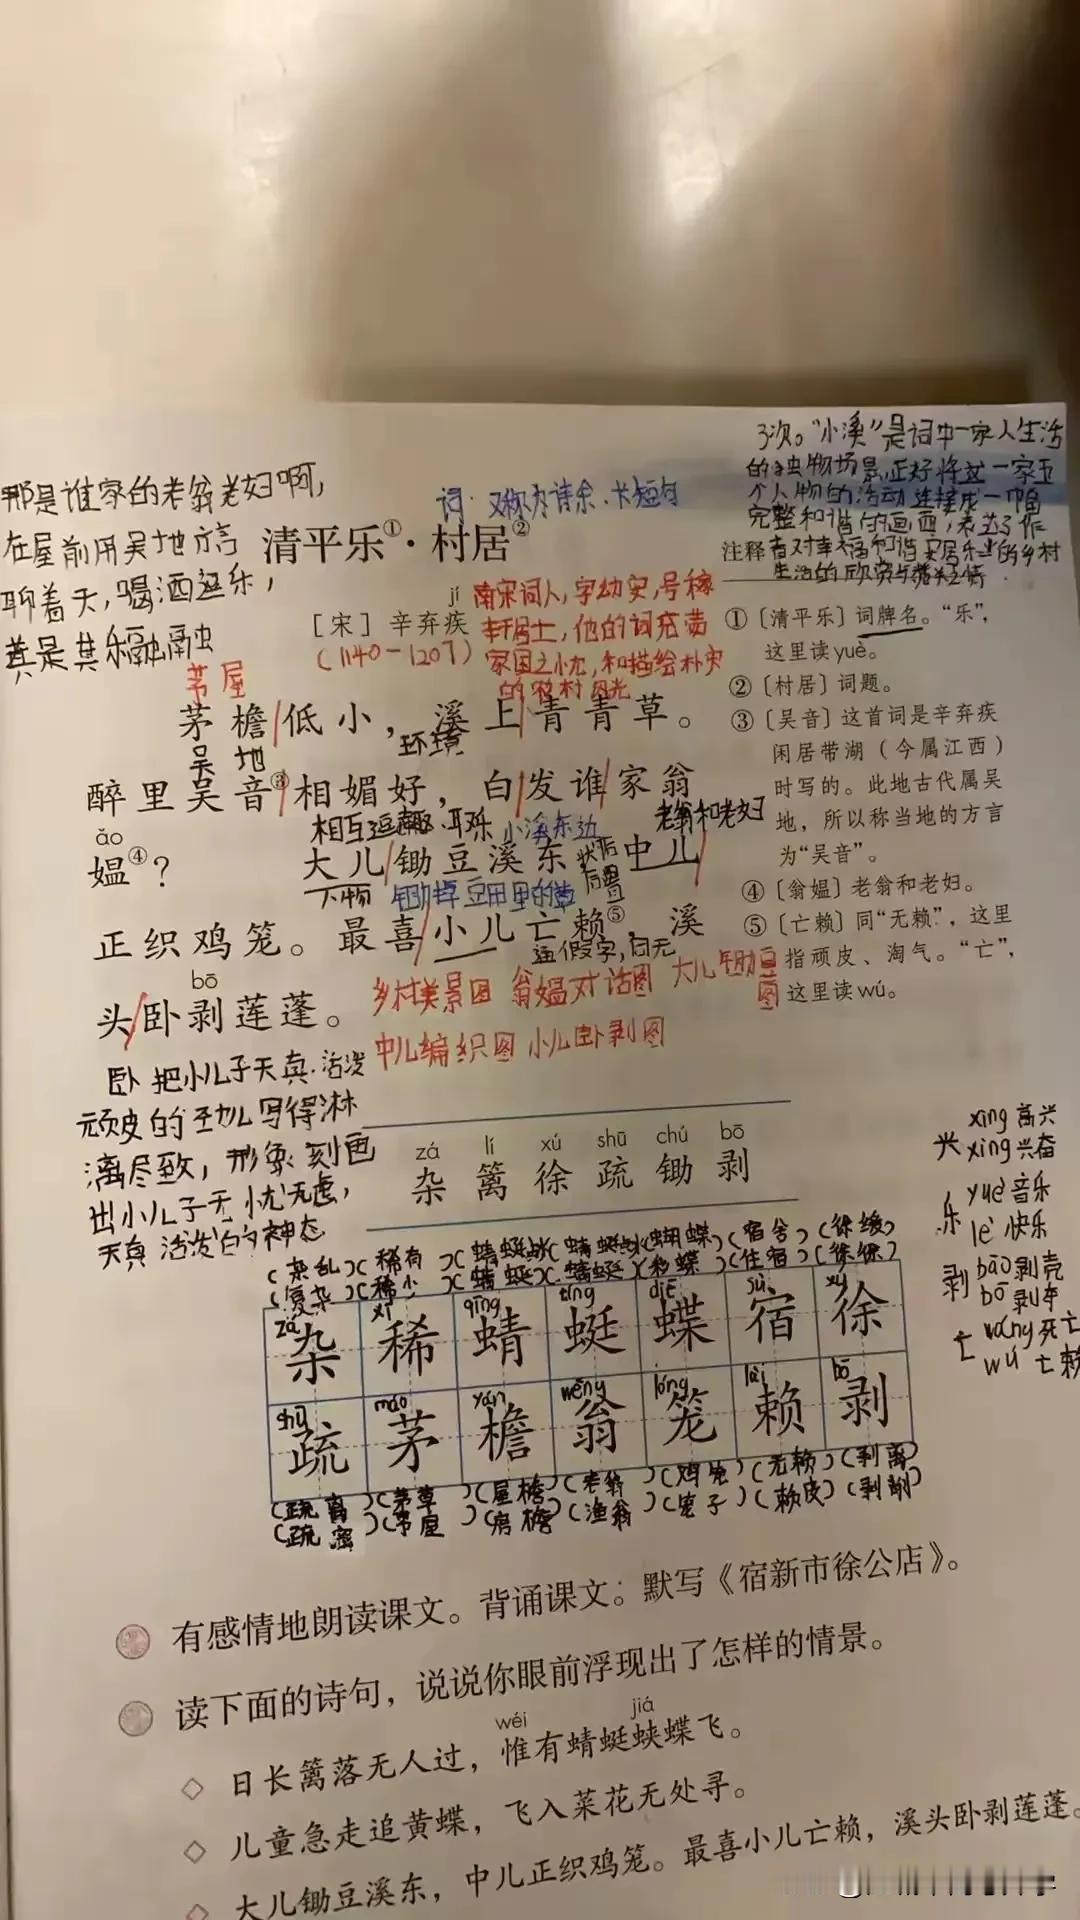 3次。“小溪”是词中一家人生活
的独物场景,正好将这一家五
个人物的活动连接成一幅
完整和谐的画面,表达了作
者对幸福和谐安居乐业的乡村
生活的欣赏与
那是谁家的老翁老妇啊,
在屋前用吴地方言
聊着天,喝酒逗乐,
真是其乐融融
词:又称为诗余·长短句
清平乐①·村居②
[宋] 辛弃疾
jí
(1140-1207)
南宋词人,字幼安,号稼
轩居士,他的词充满
家国之忧,和描绘朴实
的农村风光
茅屋
茅檐低小,溪上青青草。
吴地
环境
醉里吴音③相媚好,白发谁家翁
相互逗趣、取乐
小溪东边
老翁和老妇
ǎo
媪④?
大儿锄豆溪东
状语后置
中儿
人物
锄掉豆田里的草
正织鸡笼。最喜小儿亡赖⑤,溪
通假字,同无
bō
头卧剥莲蓬。
乡村美景图 翁媪对话图 大儿锄豆图
中儿编织图 小儿卧剥图
卧 把小儿子天真·活泼
顽皮的
写得淋
漓尽致,形象刻画
出小儿子无忧无虑,
天真活泼的神态
注释
①〔清平乐〕词牌名。“乐”,
这里读yuè。
②〔村居〕词题。
③〔吴音〕这首词是辛弃疾
闲居带湖(今属江西)
时写的。此地古代属吴
地,所以称当地的方言
为“吴音”。
④〔翁媪〕老翁和老妇。
⑤〔亡赖〕同“无赖”,这里
指顽皮、淘气。“亡”,
这里读wú。
zá lí xú shū chú bō
杂 篱 徐 疏 锄 剥
兴
xìng 高兴
xīng 兴奋
乐
yuè 音乐
lè 快乐
剥
bāo 剥壳
bō
亡
wáng 死亡
wú 亡赖
(杂乱)(稀有)(蜻蜓点水)(蜻蜓点水)(蝴蝶)(宿舍)(徐缓)
(复杂)(稀少)(蜻蜓)(蜻蜓)(彩蝶)(住宿)(徐徐)
zá xī qīng tíng dié sù xú
杂 稀 蜻 蜓 蝶 宿 徐
shū máo yán wēng lóng lài bō
疏 茅 檐 翁 笼 赖 剥
(疏离)(茅草)(屋檐)(老翁)(鸡笼)(无赖)(剥离)
(疏密)(茅屋)(房檐)(渔翁)(笼子)(赖皮)(剥削)
有感情地朗读课文。背诵课文。默写《宿新市徐公店》。
读下面的诗句,说说你眼前浮现出了怎样的情景。
wéi jiá
◇ 日长篱落无人过,惟有蜻蜓蛱蝶飞。
◇ 儿童急走追黄蝶,飞入菜花无处寻。
◇ 大儿锄豆溪东,中儿正织鸡笼。最喜小儿亡赖,溪头卧剥莲蓬。